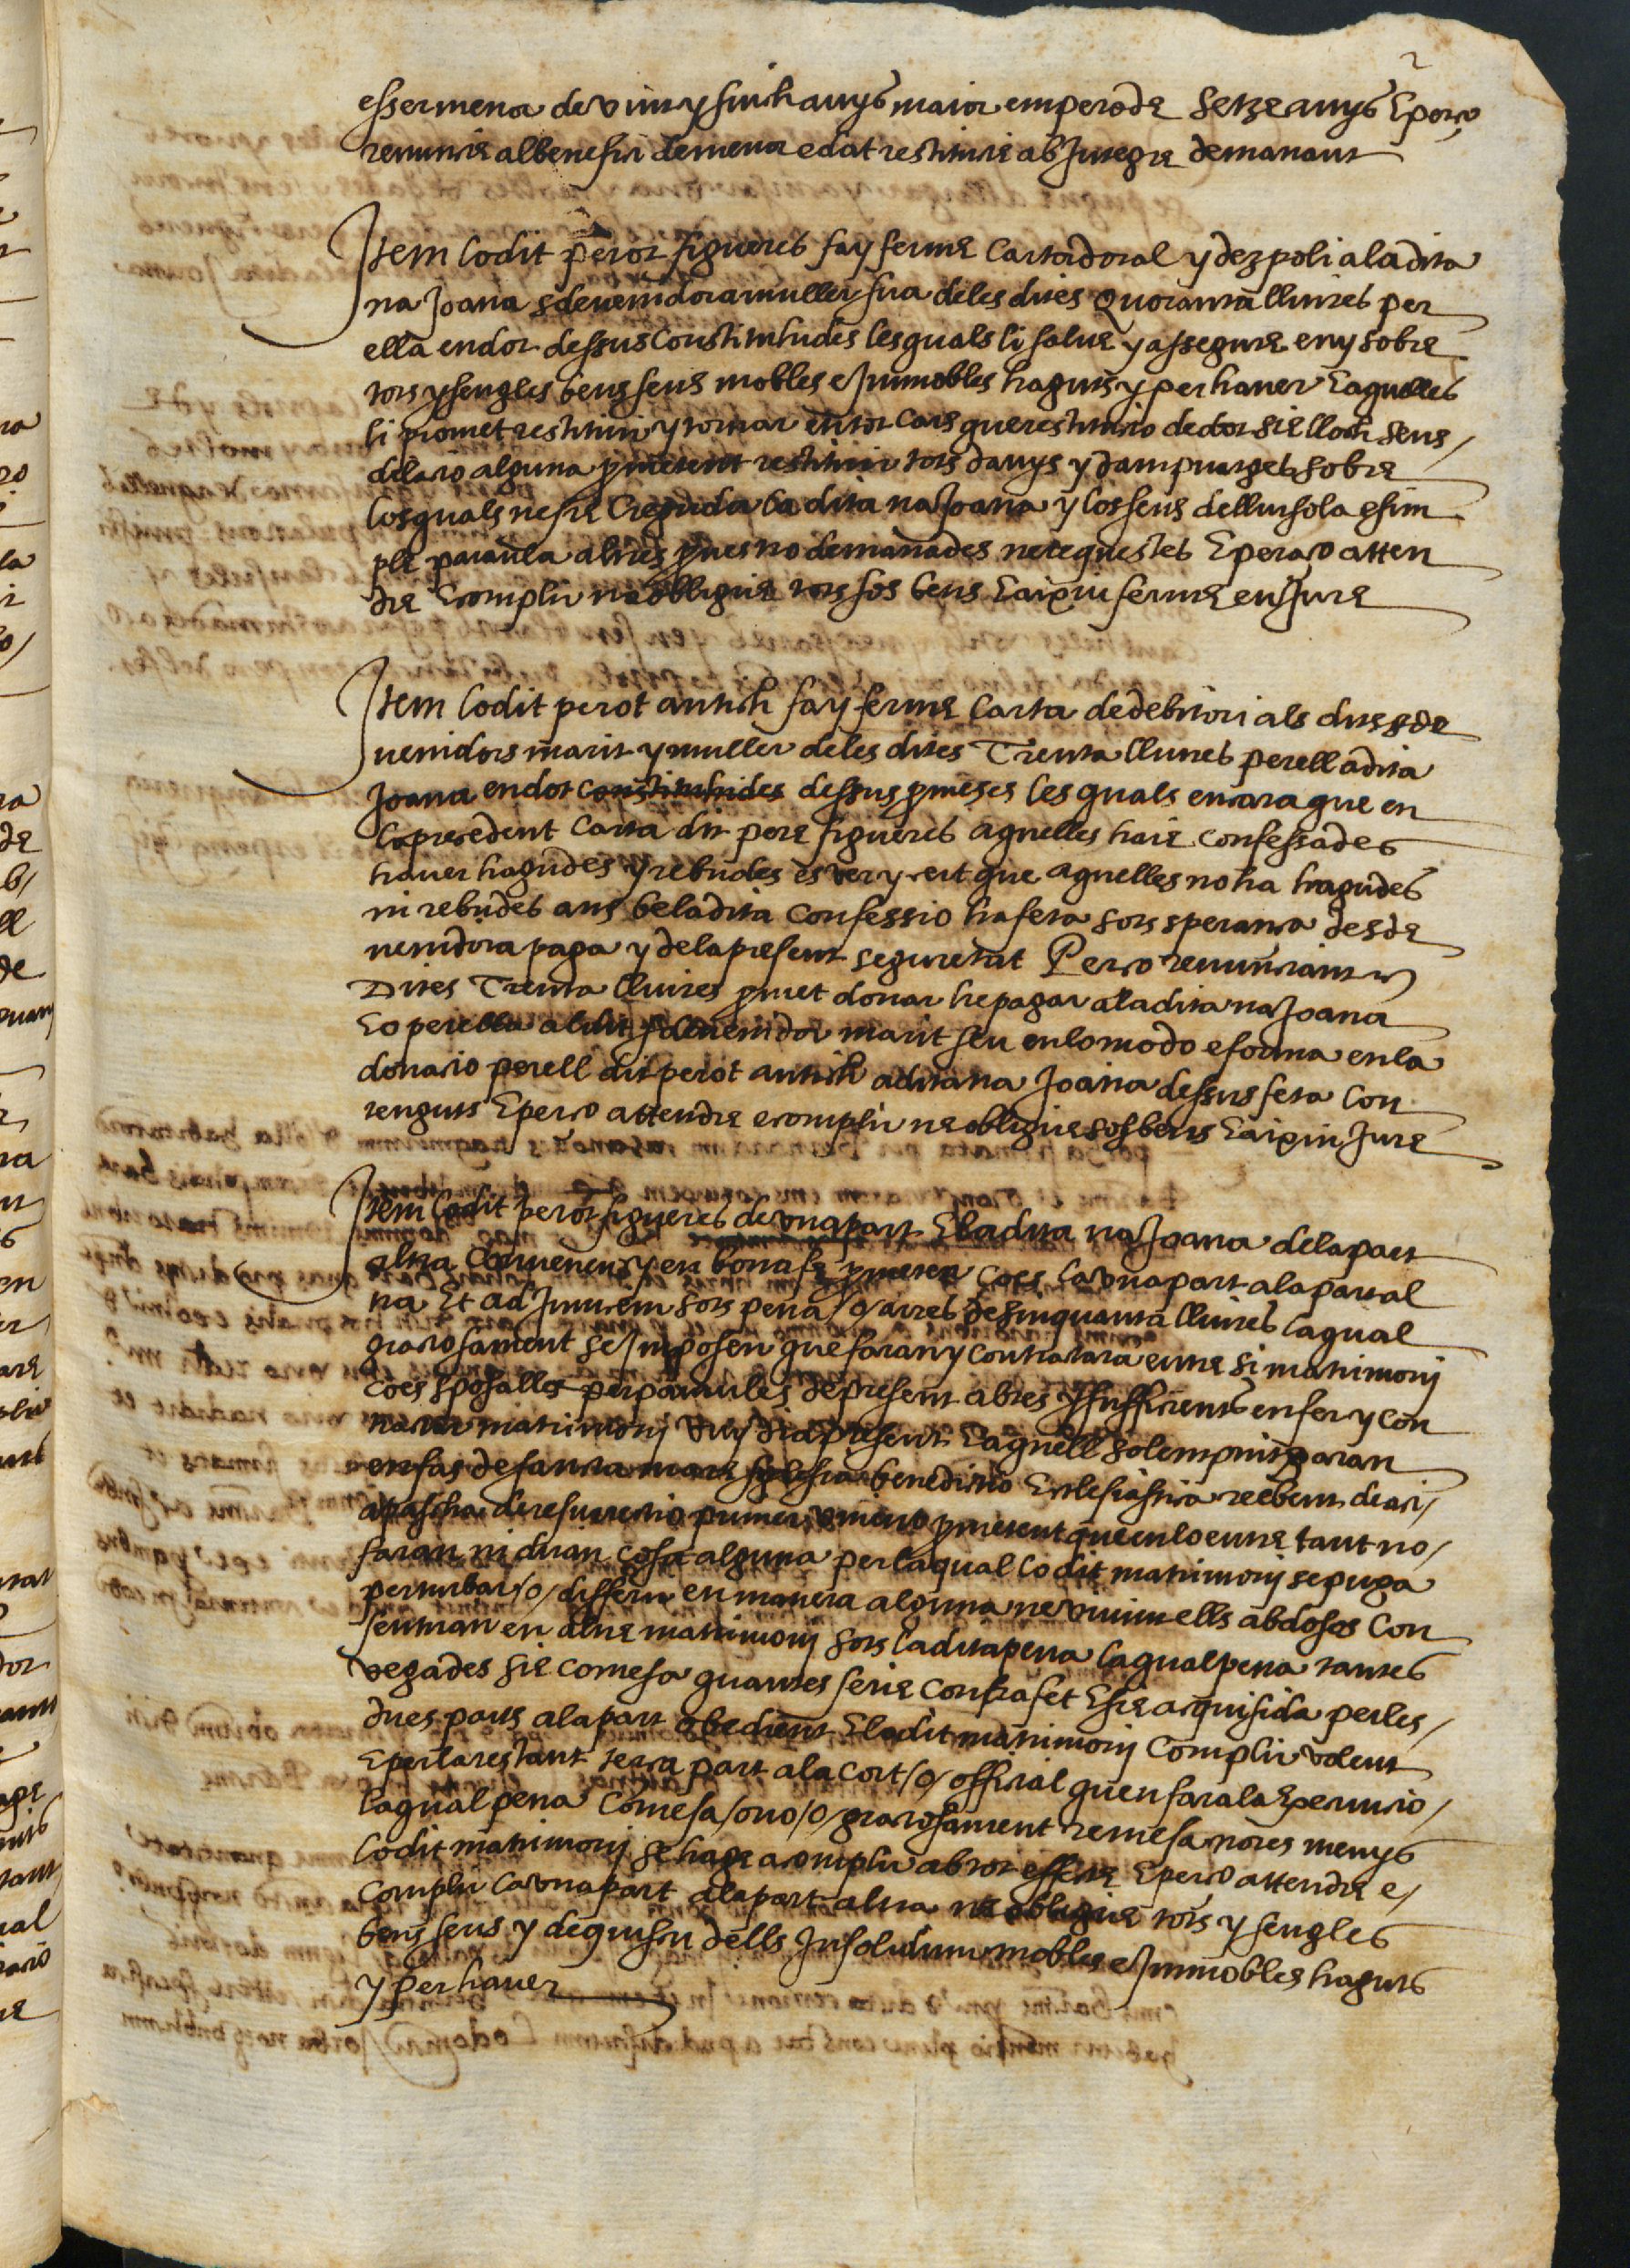 2
esser menor de vint y sinch anys maior empero de setze anys E per ço
renuncie al benefici de menor edat restitucie ab Integre demanant
Item lo dit perot figueres fa y ferme Carta dotal y dezpoli a la dita
na Joana sdevenidora muller sua de les dites Quoranta lliures per
ella en dot dessus Constituhides les quals li salve y assegure en y sobre
tots y sengles bens seus mobles e Immobles haguts y per haver E aquelles
li promet restituir y tornar en tot cars que restitucio de dot sie lloch sens /
dilacio alguna prometent restituir tots danys y dampnatges sobre
los quals ne sie Creguda la dita na Joana y los seus de llur sola e sim
ple paraula altres proves no demanades ne request es E per aço atten
dre E complir ne obligue tots sos bens E aixi u ferme en Jure
Item lo dit perot antich fa y ferme Carta de debitori als dits sde
venidors marit y muller de les dites Trenta lliures per ell a dita
Joana en dot constituhides dessus promeses les quals encara que en
la precedent Carta dit pere figueres aquelles haie confessades
haver hagudes y rebudes es ver y cert que aquelles no ha hagudes
ni rebudes ans be la dita Confessio ha feta sots sperança des de
venidora paga y de la present seguretat Per ço renunciant
Dites Trenta lliures promet donar he pagar a la dita na Joana
E o per ella al dit sdevenidor marit seu en lo modo e forma en la
donacio per ell dit perot antich a dita na Joana dessus feta Con
tenguts E per ço attendre e complir ne obligue sos bens E aixi u Jure
Item lo dit perot figueres de una part E la dita na Joana de la part
altra Convenen y en bona fe prometen Coes la una part a la part al
tra Et ad Invicem sots pena /o/ arres de sinquanta lliures la qual
graciosament se Imposen que faran y contractara entre si matrimoni
Coes sposalles per paraules de present abtes y sufficients en fer y con
tractar matrimoni vuy dia present E aquell solempnitzaran
en fas de sancta mare sglesia benedictio Ecclesiastica reebent de assi /
a pascha de resurrectio primer vinent prometent que en lo entretant no /
faran ni diran cosa alguna per la qual lo dit matrimoni se puga
perturbar /o/ differir en manera alguna ne vivint ells abdosos Con
sentiran en altre matrimoni sots la dita pena la qual pena tantes
vegades sie comesa quantes serie Contrafet E sie acquisida per les /
dues parts a la part obedient E lo dit matrimoni Complir volent
E per la restant terça part a la Cort /o/ official quen fara la Executio /
la qual pena Comesa /o no /o/ graciosament remesa no res menys
lo dit matrimoni se hage a complir ab tot effecte E per ço attendre e /
complir la una part a la part altra ne obligue tots y sengles
bens seus y de quisvu dells Insolidum mobles e Immobles haguts
y per haver